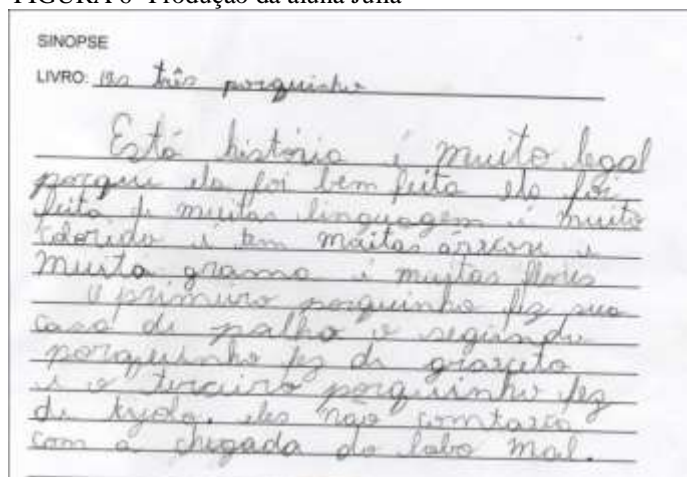 FIGURA 6- Produção da aluna Júlia
SINOPSE
LIVRO: Os três porquinho
Está história é muito legal
porque ela foi bem feita ela foi
feita de muitas linguagem é muito
colorida i tem muitas árvore i
muita grama i muitas flores
O primeiro porquinho fez sua
casa de palha o segundo
porquinho fez de graveto
i o terceiro porquinho fez
de tijolo. eles não
com a chegada do lobo mal.